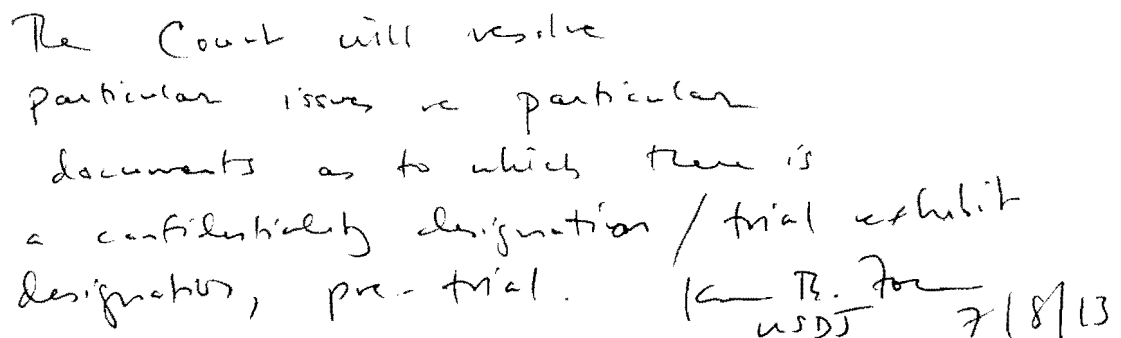 The Court will resolve
particular issues re particular
documents as to which there is
a confidentiality designation / trial exhibit
designation, pre-trial. K B. Fo
USDJ 7/8/13